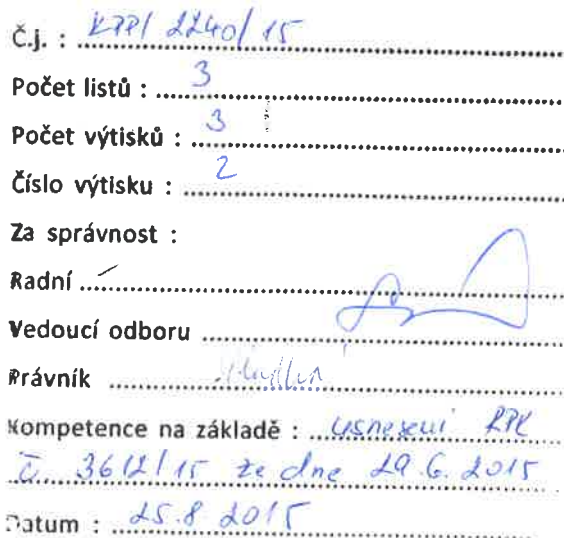 Č.j. : KPPI 2240/15
Počet listů : 3
Počet výtisků : 3
Číslo výtisku : 2
Za správnost :
Radní
Vedoucí odboru
Právník
Kompetence na základě : usnesení RPK
č. 3612/15 ze dne 29.6.2015
Datum : 25.8 2015